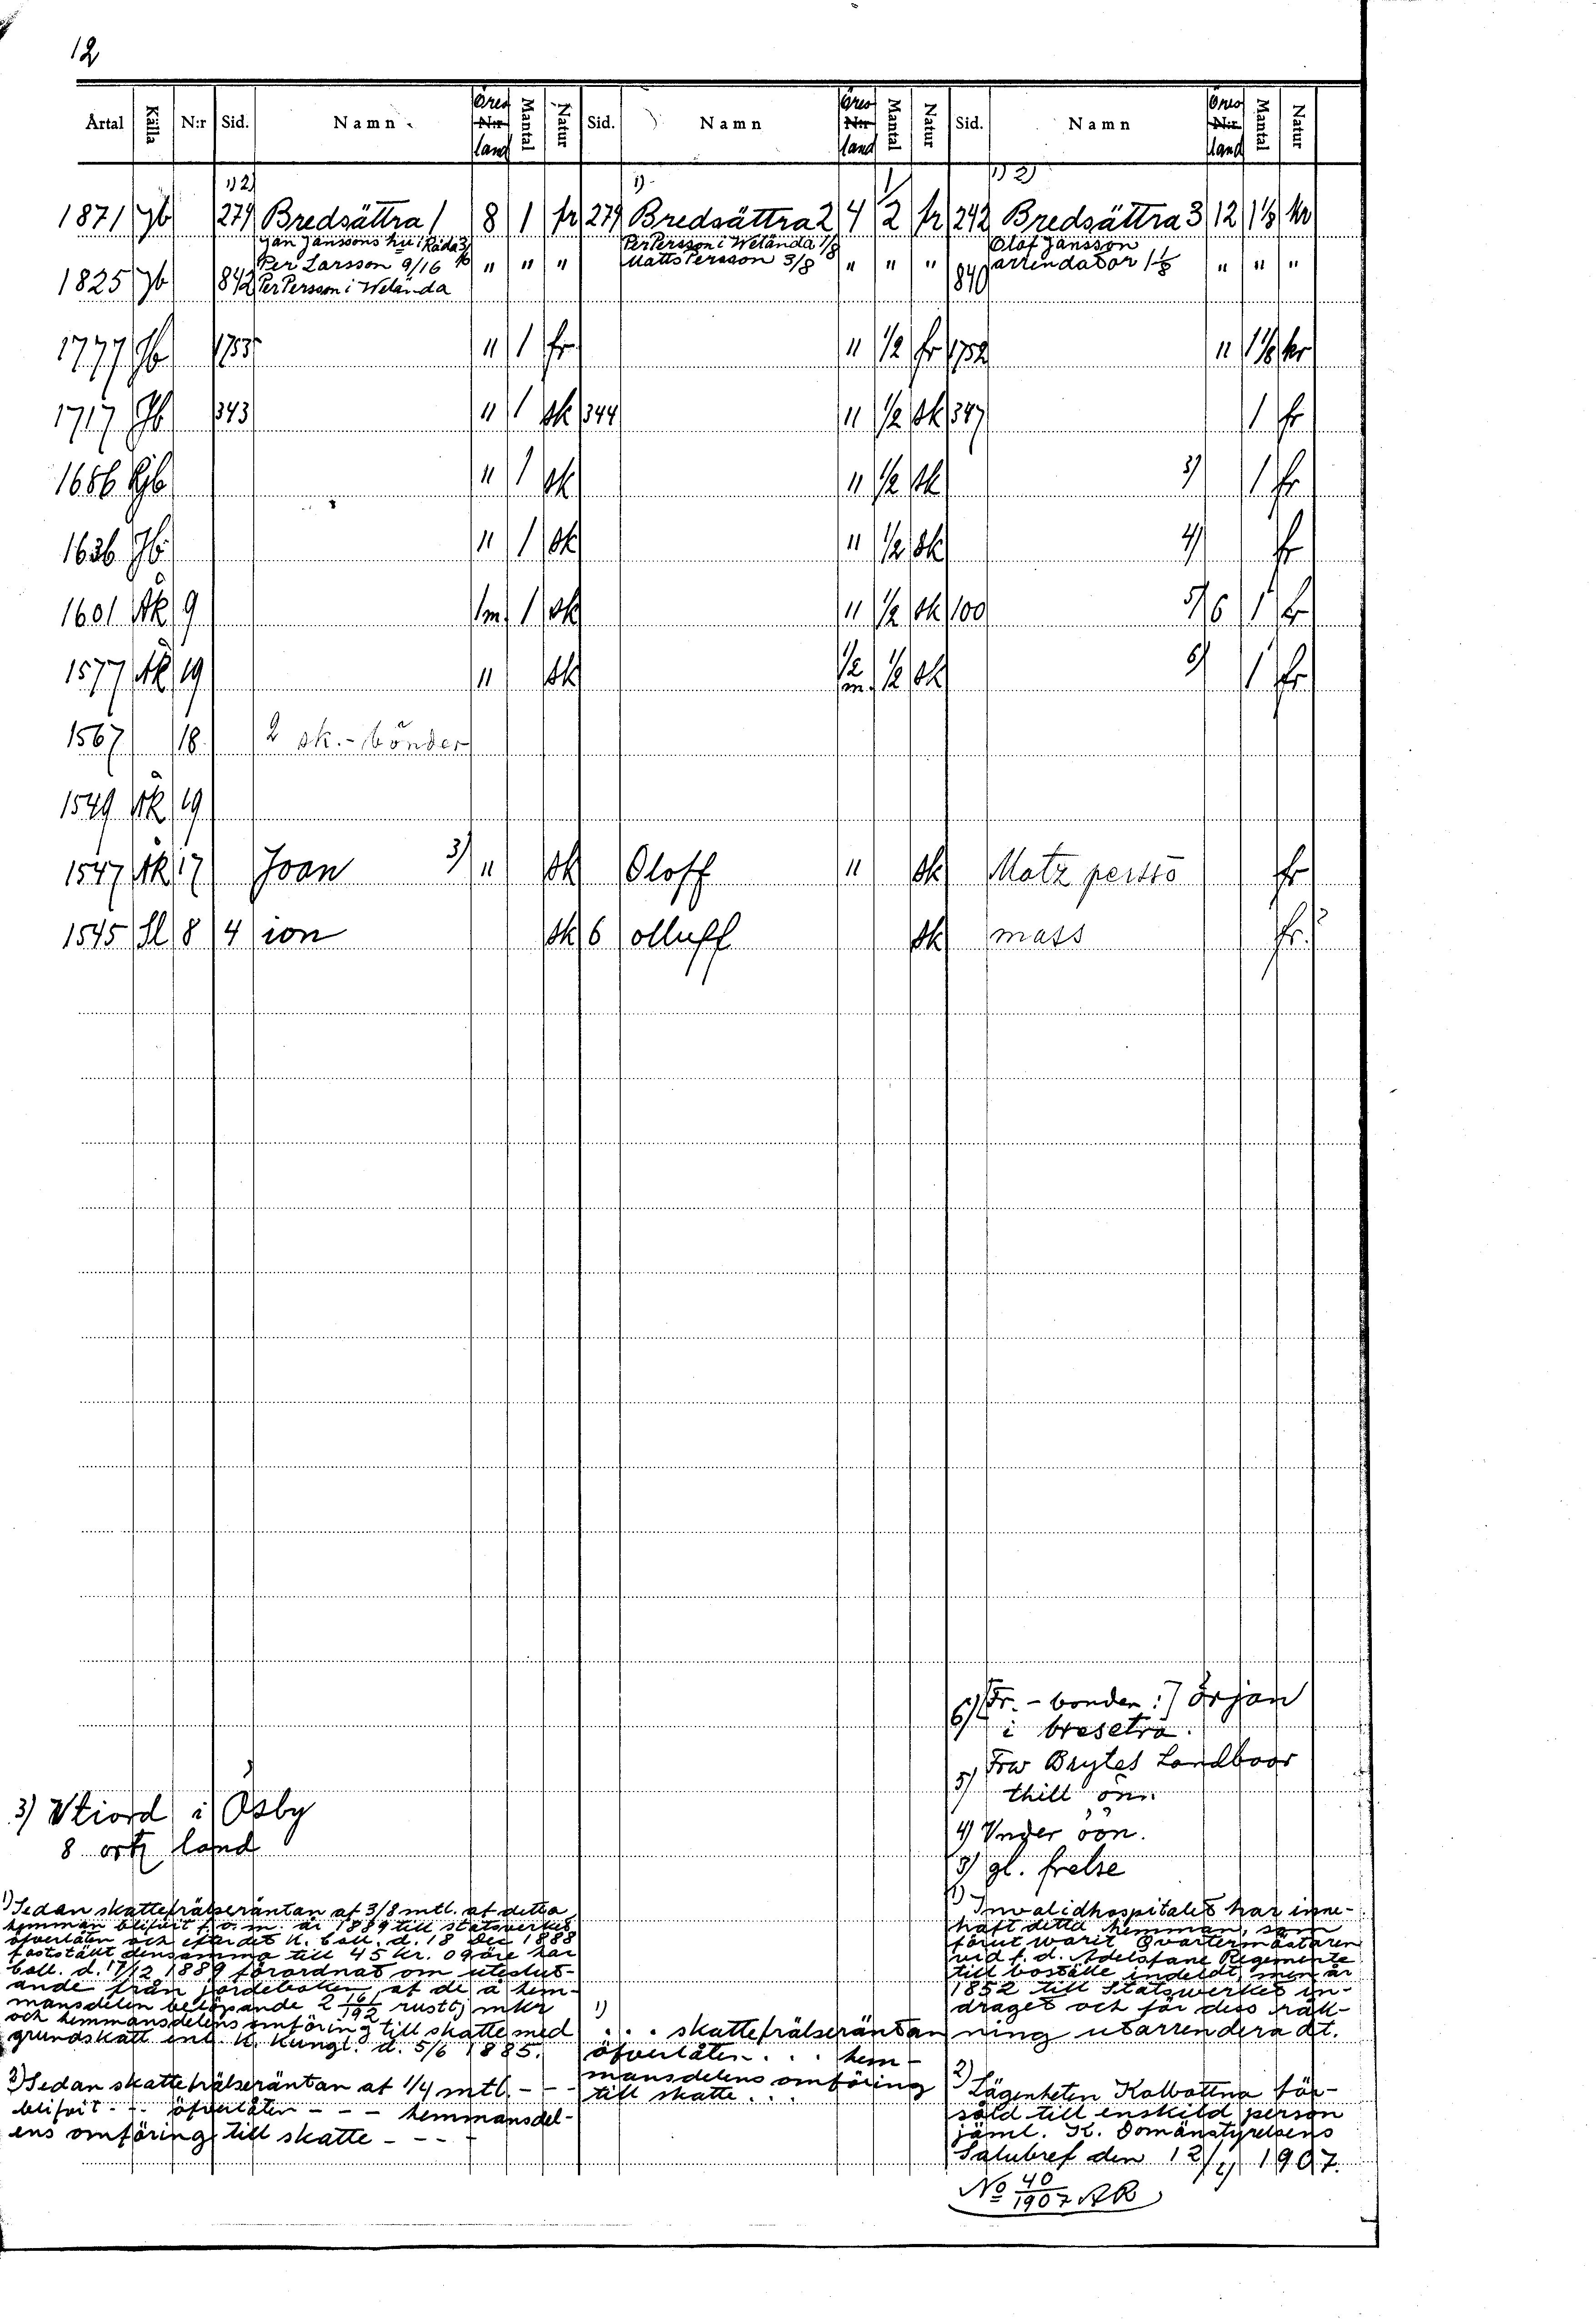 12
Årtal Källa N:r Sid. Namn Öres N:r land Mantal Natur Sid. Namn Öres N:r land Mantal Natur Sid. Namn Öres N:r land Mantal Natur
1) 2) 1) 1) 2)
1871 Jb 279 Bredsättra 1 8 1 fr 279 Bredsättra 2 4 1/2 fr 242 Bredsättra 3 12 1 1/8 kr
Jan Janssons hu i Råda 3/16 Per Persson i Welända 1/8 Olof Jansson
Per Larsson 9/16 " " " Matts Persson 3/8 " " " arrendator 1 1/8 " " "
1825 Jb 842 Per Persson i Welända 840
1777 Jb 1753 " 1 fr " 1/2 fr 1752 " 1 1/8 kr
1717 Jb 343 " 1 sk 344 " 1/2 sk 347 1 fr
1686 Jb " 1 sk " 1/2 sk 3) 1 fr
1636 Jb " 1 sk " 1/2 sk 4) fr
1601 Åk 9 1 m 1 sk " 1/2 sk 100 5) 6 1 fr
1577 Åk 19 " sk 1/2 m 1/2 sk 6) 1 fr
1567 18 2 sk.-bönder
1549 Åk 19
1547 Åk 17 Joan 3) " sk Oloff " sk Matz perssō fr
1545 Sl 8 4 ion sk 6 olluff sk mass fr.?
6) [Fr.-bonden:] Örjan
i bresetra.
5) Frw Brytes Landboor
thill ön.
4) Vnder öön.
3) gl. frelse
3) Vtiord i Åsby
8 ort land
1) Sedan skattefrälseräntan af 3/8 mtl. af detta
hemman blifvit f.o.m. år 1889 till statsverket
öfverlåten och efter det K. ball. d. 18 Dec 1888
fastställt densamma till 45 kr. 09 öre har
ball. d. 17/12 1889 förordnat om uteslut-
ande från jordeboken af de å hem-
mansdelen belöpande 2 161/192 rusttj mkr
och hemmansdelens omföring till skatte med
grundskatt enl. K. Kungl. d. 5/6 1885.
2) Sedan skattefrälseräntan af 1/4 mtl. - -
blifvit - - öfverlåten - - - hemmansdel-
ens omföring till skatte - - - -
1)
. . . skattefrälseräntan
öfverlåten . . . hem-
mansdelens omföring
till skatte . . .
1) Invalidhospitalet har inne-
haft detta hemman, som
förut warit Qvartermästaren
vid f. d. Adelsfane Regemente
till boställe indeldt, men år
1852 till Statswerket in-
draget och för dess räk-
ning utarrenderadt.
2) Lägenheten Kolbottna för-
såld till enskild person
jäml. K. Domänstyrelsens
Salubref den 12/4 1907.
No 40/1907 AR